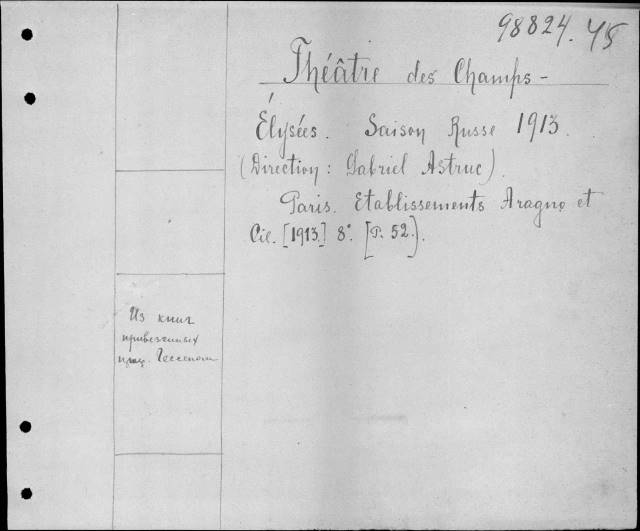 98824.
Théâtre des Champs-
Élysées. Saison Russe 1913.
(Direction: Gabriel Astruc).
Paris. Etablissements Aragno et
Cie. [1913] 8°. [P. 52.].
Из книг
привезенных
Гессеном